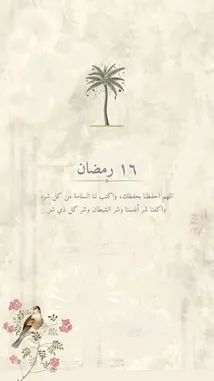 ١٦ رمضان
اللهم احفظنا بحفظك، واكتب لنا السلامة من كل شر،
واكفنا شر أنفسنا وشر الشيطان وشر كل ذي شر